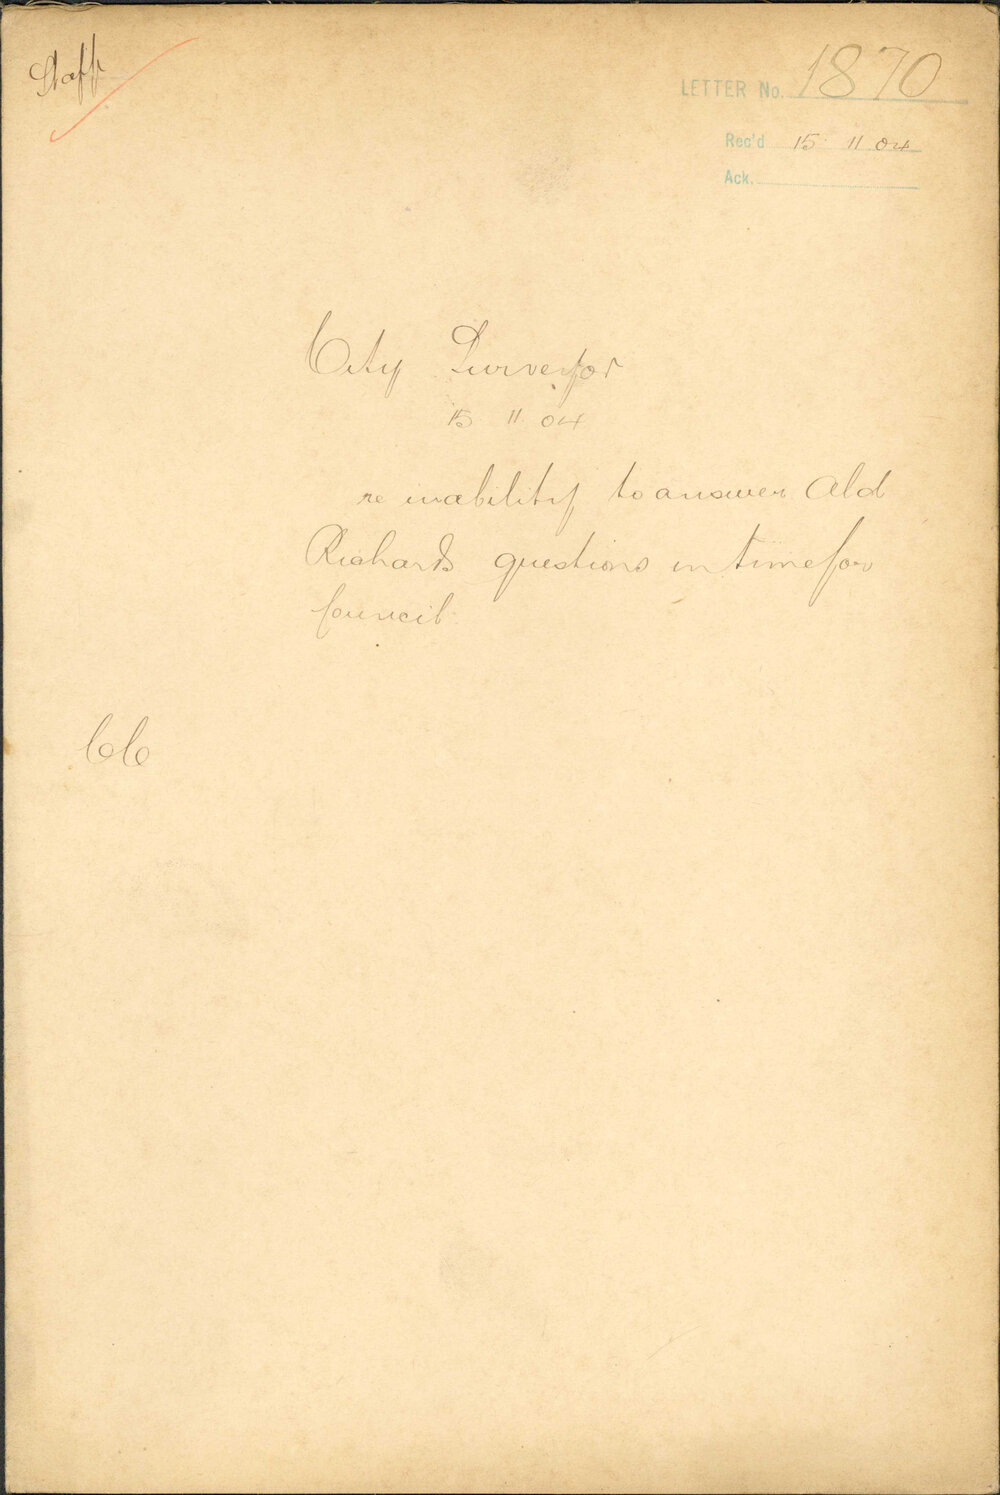 Staff
LETTER No. 1870
Rec'd 15 11 04
Ack.
City Surveyor
15 11 04
re inability to answer Ald
Richards questions in time for
Council